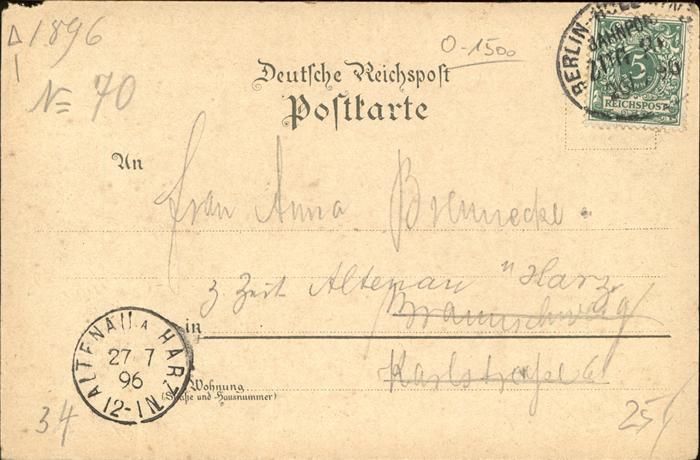 1896
№ 70
0-1500
Deutsche Reichspost
Postkarte
BERLIN
BAHNPOST
5
REICHSPOST
An
Frau Anna Brennecke.
z Zeit Altenau "Harz
in Braunschweig
Wohnung
(Straße und Hausnummer)
Karlstraße 6
ALTENAU A HARZ
27 7
96
12-1N
34
25